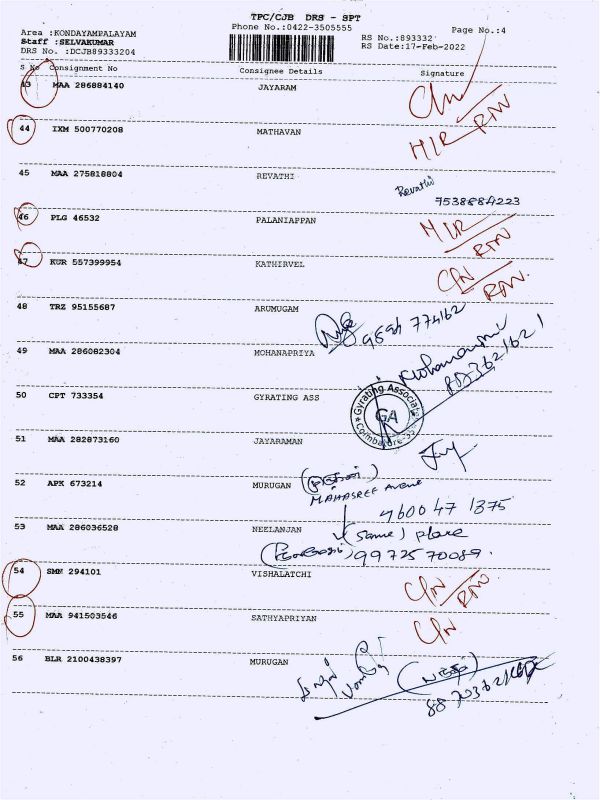 TPC/CJB DRS - SPT
Phone No.:0422-3505555
Page No.:4
Area :KONDAYAMPALAYAM
Staff :SELVAKUMAR
DRS No. :DCJB89333204
RS No.:893332
RS Date:17-Feb-2022
S No Consignment No Consignee Details Signature
43 MAA 286884140 JAYARAM
RTN
44 IXM 500770208 MATHAVAN
45 MAA 275818804 REVATHI
Revathi
7538884223
46 PLG 46532 PALANIAPPAN
RTN
47 KUR 557399954 KATHIRVEL
RTN.
48 TRZ 95155687 ARUMUGAM
49 MAA 286082304 MOHANAPRIYA
50 CPT 733354 GYRATING ASS
Gyrating Associat
GA
Coimbatore
51 MAA 282873160 JAYARAMAN
52 APK 673214 MURUGAN
MAHASREE Avenue
4600471375
53 MAA 286036528 NEELANJAN
(same) place
9972570089.
54 SMN 294101 VISHALATCHI
RTN
55 MAA 941503546 SATHYAPRIYAN
56 BLR 2100438397 MURUGAN